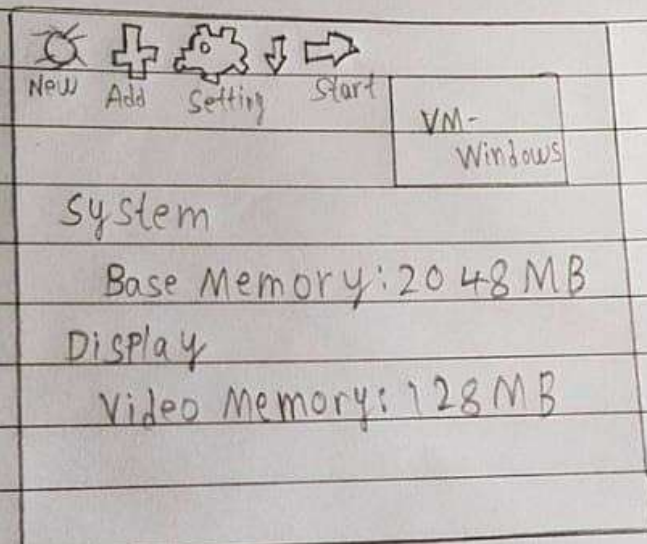 New Add Setting Start
VM-
Windows
System
Base Memory: 2048 MB
Display
Video Memory: 128 MB